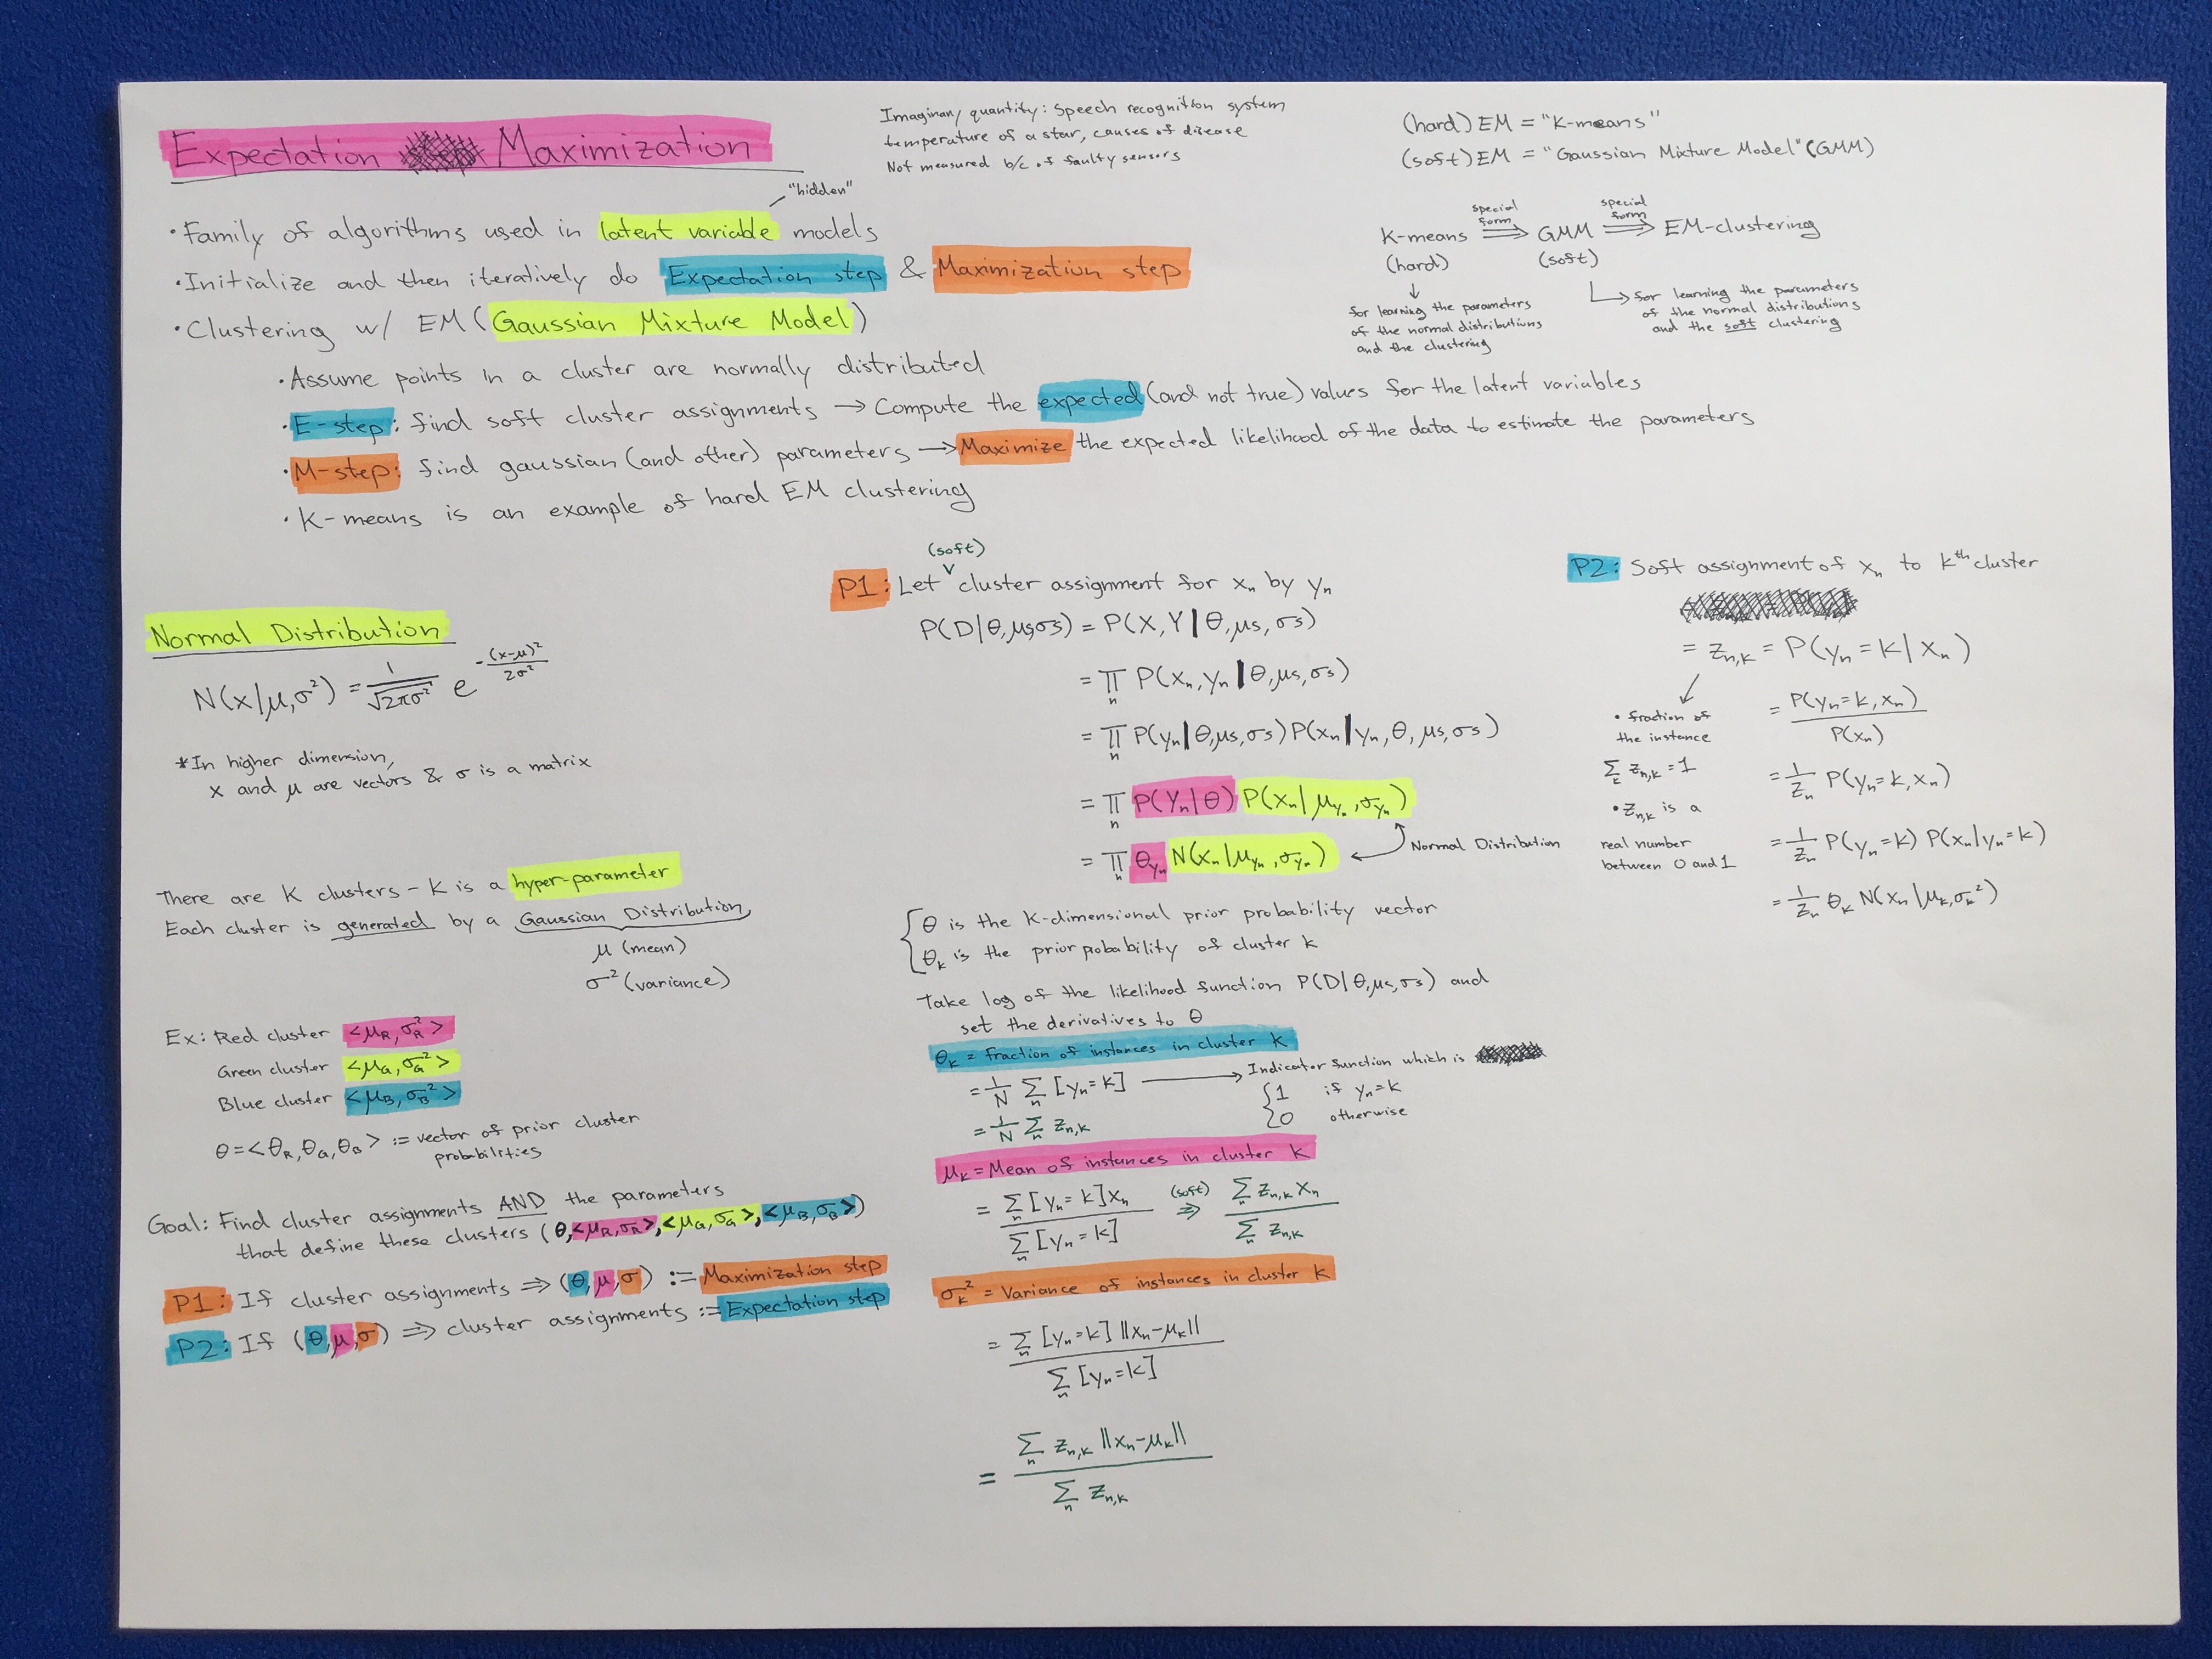 Expectation Maximization
Imaginary quantity: Speech recognition system
temperature of a star, causes of disease
Not measured b/c of faulty sensors
(hard) EM = "K-means"
(soft) EM = "Gaussian Mixture Model" (GMM)
"hidden"
• Family of algorithms used in latent variable models
• Initialize and then iteratively do Expectation step & Maximization step
• Clustering w/ EM (Gaussian Mixture Model)
• Assume points in a cluster are normally distributed
• E-step: find soft cluster assignments → Compute the expected (and not true) values for the latent variables
• M-step: find gaussian (and other) parameters → Maximize the expected likelihood of the data to estimate the parameters
• K-means is an example of hard EM clustering
special form special form
K-means ⇒ GMM ⇒ EM-clustering
(hard) (soft)
↓ for learning the parameters
of the normal distributions
and the clustering
↳ for learning the parameters
of the normal distributions
and the soft clustering
Normal Distribution
N(x|μ,σ²) = 1/√(2πσ²) e^(-(x-μ)²/2σ²)
*In higher dimension,
x and μ are vectors & σ is a matrix
There are K clusters - K is a hyper-parameter
Each cluster is generated by a Gaussian Distribution
μ (mean)
σ² (variance)
Ex: Red cluster <μ_R, σ_R²>
Green cluster <μ_G, σ_G²>
Blue cluster <μ_B, σ_B²>
θ = <θ_R, θ_G, θ_B> := vector of prior cluster
probabilities
Goal: Find cluster assignments AND the parameters
that define these clusters (θ, <μ_R, σ_R>, <μ_G, σ_G>, <μ_B, σ_B>)
P1: If cluster assignments ⇒ (θ, μ, σ) := Maximization step
P2: If (θ, μ, σ) ⇒ cluster assignments := Expectation step
(soft)
P1: Let ∨ cluster assignment for x_n by y_n
P(D|θ,μs,σs) = P(X,Y|θ,μs,σs)
= Π_n P(x_n, y_n|θ,μs,σs)
= Π_n P(y_n|θ,μs,σs) P(x_n|y_n, θ, μs, σs)
= Π_n P(Y_n|θ) P(x_n|μ_{y_n}, σ_{y_n})
= Π_n θ_{y_n} N(x_n|μ_{y_n}, σ_{y_n})
Normal Distribution
{ θ is the K-dimensional prior probability vector
θ_k is the prior probability of cluster k
Take log of the likelihood function P(D|θ,μs,σs) and
set the derivatives to θ
θ_k = fraction of instances in cluster k
= 1/N Σ_n [y_n = k] → Indicator function which is
{ 1 if y_n = k
0 otherwise
= 1/N Σ_n z_{n,k}
μ_k = Mean of instances in cluster k
= Σ_n [y_n = k] x_n / Σ_n [y_n = k] (soft) ⇒ Σ_n z_{n,k} x_n / Σ_n z_{n,k}
σ_k² = Variance of instances in cluster k
= Σ_n [y_n = k] ||x_n - μ_k|| / Σ_n [y_n = k]
= Σ_n z_{n,k} ||x_n - μ_k|| / Σ_n z_{n,k}
P2: Soft assignment of x_n to k^th cluster
= z_{n,k} = P(y_n = k | x_n)
• fraction of
the instance
Σ_k z_{n,k} = 1
• z_{n,k} is a
real number
between 0 and 1
= P(y_n = k, x_n) / P(x_n)
= 1/Z_n P(y_n = k, x_n)
= 1/Z_n P(y_n = k) P(x_n|y_n = k)
= 1/Z_n θ_k N(x_n|μ_k, σ_k²)